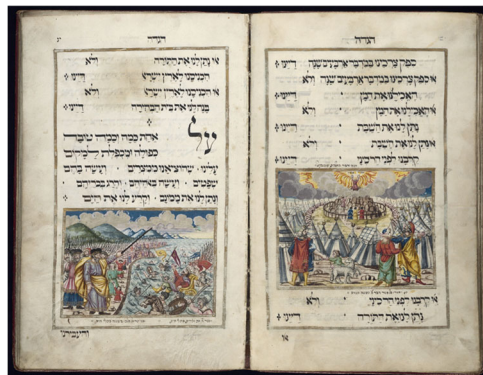 הגדה
ספק צרכינו במדבר ארבעים שנה דיינו :
או ספק צרכינו במדבר ארבעים שנה ולא
האכילנו את המן דיינו :
או האכילנו את המן ולא
נתן לנו את השבת דיינו :
או נתן לנו את השבת ולא
קרבנו לפני הר סיני דיינו :
או קרבנו לפני הר סיני ולא
נתן לנו את התורה דיינו :
הגדה
או נתן לנו את התורה ולא
הכניסנו לארץ ישרא דיינו :
או הכניסנו לארץ ישרא ולא
בנה לנו את בית הבחירה דיינו :
על אחת כמה וכמה טובה
כפולה ומכפלת למקום
עלינו שהוציאנו ממצרים ועשה בהם
שפטים ועשה באלהיהם והרג בכוריהם
ונתן לנו את ממונם וקרע לנו את הים
והעבירנו